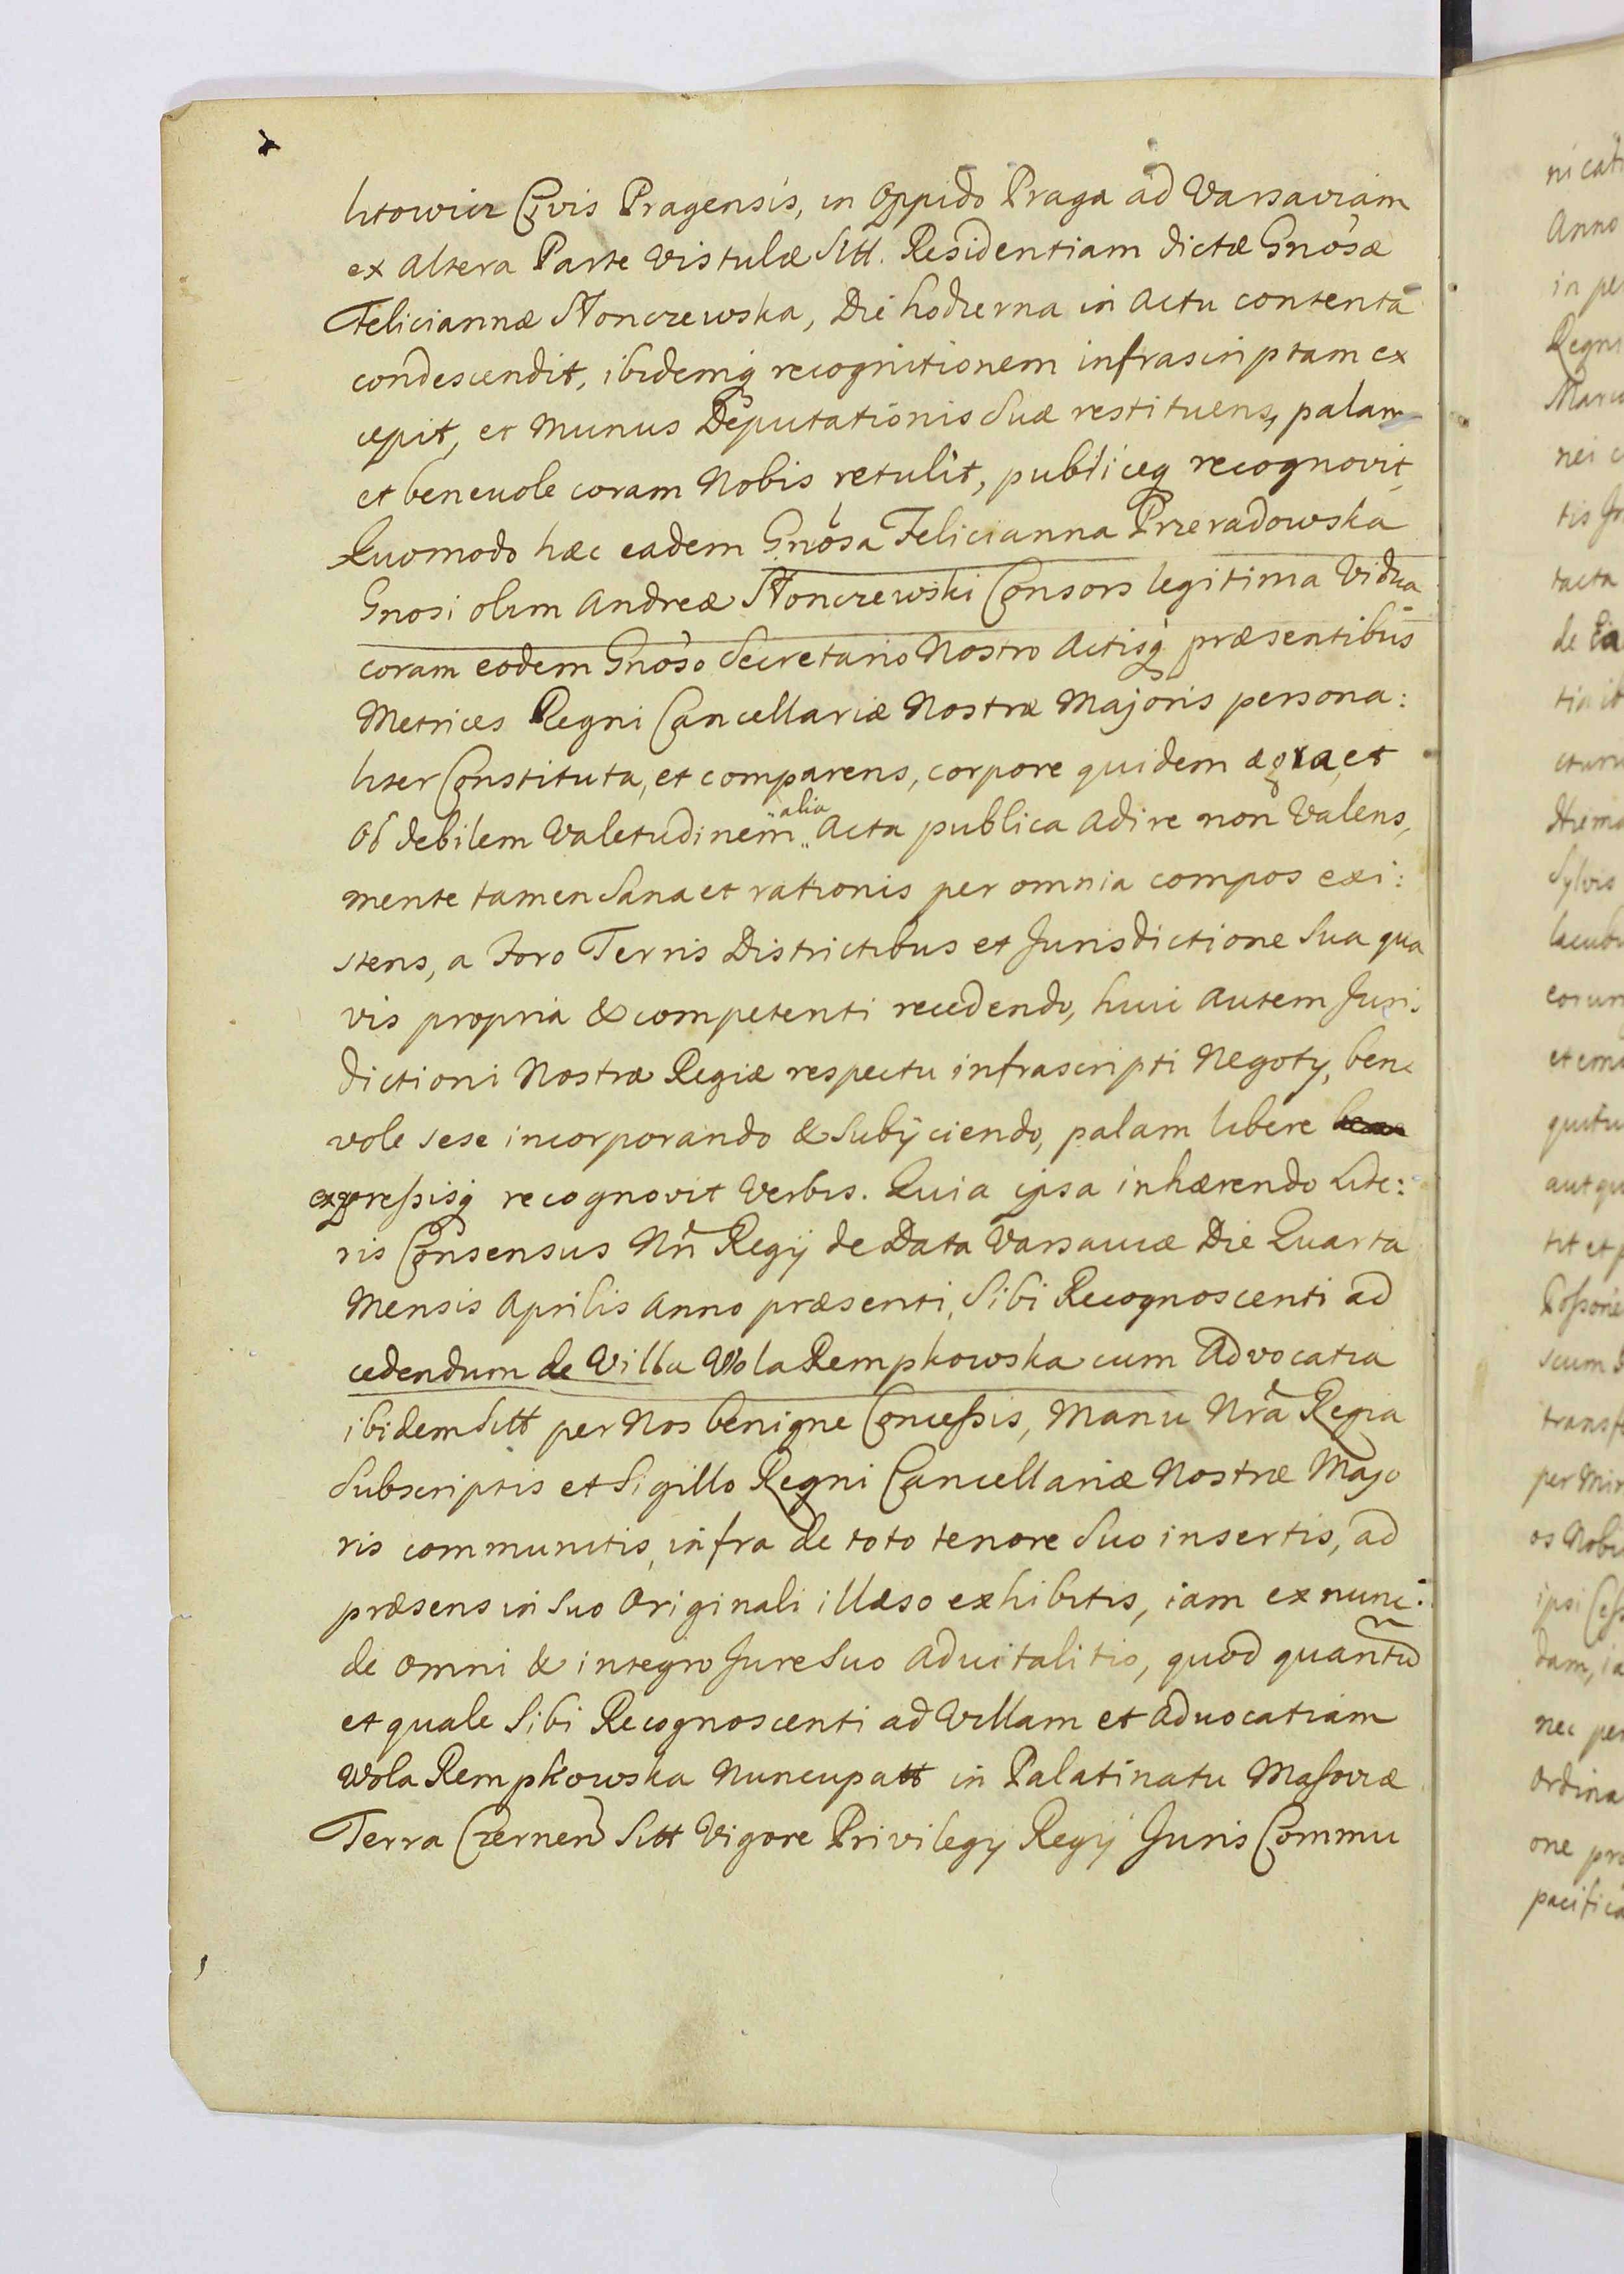 litowicz Civis Pragensis, in Oppido Praga ad Varsaviam
ex altera Parte Vistulæ Sitt. Residentiam dictæ Gnosæ
Feliciannæ Słonczewska, Die hodierna in actu contenta
condescendit, ibidemq recognitionem infrascriptam ex
cepit, et Munus Deputationis Suæ restituens, palam
et benevole coram Nobis retulit, publiceq recognovit,
Quomodo hæc eadem Gnosa Felicianna Przeradowska
Gnosi olim Andreæ Słonczewski Consors legitima Vidua
coram eodem Gnoso Secretario Nostro Actisq præsentibus
Metrices Regni Cancellariæ Nostræ Majoris persona:
liter Constituta, et comparens, corpore quidem ægra, et
Ob debilem Valetudinem „alia„ Acta publica adire non Valens,
mente tamen Sana et rationis per omnia compos exi:
stens, a Foro Terris Districtibus et Jurisdictione Sua qua
vis propria & competenti recedendo, huic autem Juris
dictioni Nostræ Regiæ respectu infrascripti Negoty, bene
vole sese incorporando & Subijciendo, palam libere
expressisq recognovit Verbis. Quia ipsa inhærendo Lite:
ris Consensus Nri Regij de Data Varsaviæ Die Quarta
Mensis Aprilis Anno præsenti, Sibi Recognoscenti ad
cedendum de Villa Wola Rempkowska cum Advocatia
ibidem Sitt per Nos benigne Concessis, Manu Nra Regia
Subscriptis et Sigillo Regni Cancellariæ Nostræ Majo
ris communitis, infra de toto tenore Suo insertis, ad
præsens in suo Originali illæso exhibitis, iam ex nunc:
de Omni & integro Jure Suo Advitalitio, quod quantũ
et quale Sibi Recognoscenti ad Villam et Advocatiam
Wola Rempkowska Nuncupatt in Palatinatu Masoviæ
Terra Czernen Sitt Vigore Privilegij Regij Juris Commu